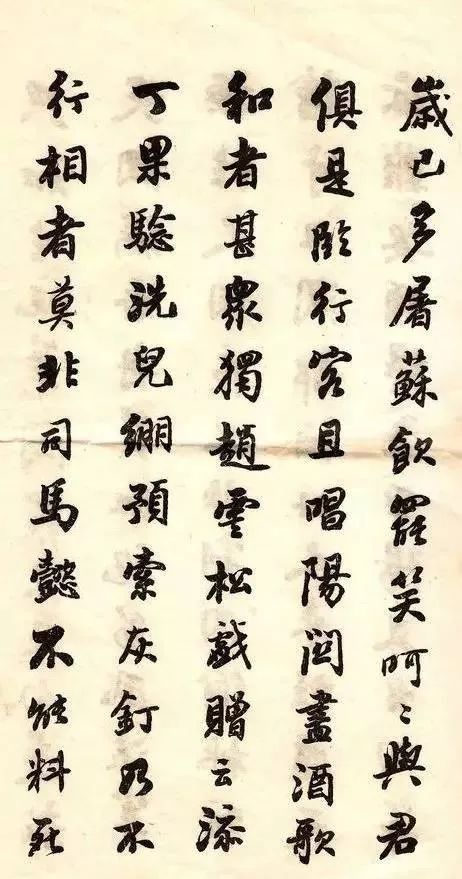 歲已多屠蘇飲罷笑呵〻與君
俱是臨行客且唱陽關盡酒歌
和者甚眾獨趙雲松戲贈云添
丁果驗洗兒繃預索灰釘乃不
行相者莫非司馬懿不能料死